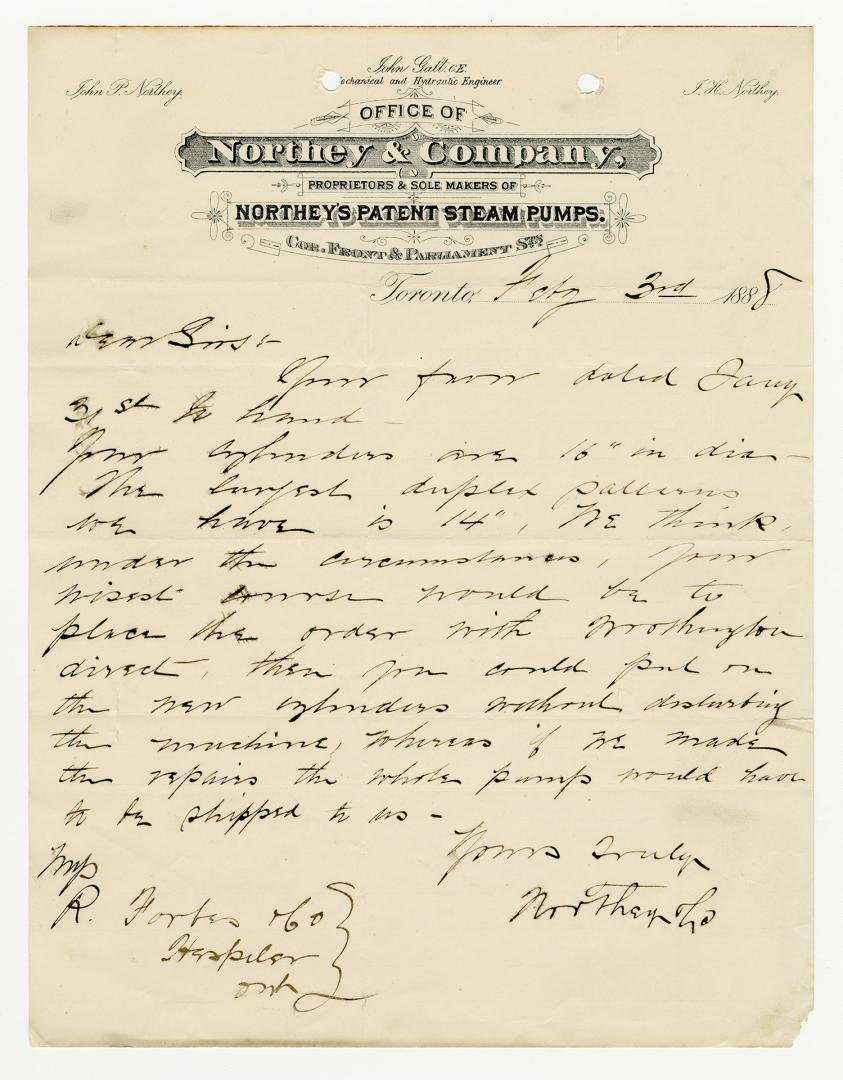 John Galt. C.E.
Mechanical and Hydraulic Engineer.
John P. Northey.
J. H. Northey.
OFFICE OF
Northey & Company,
PROPRIETORS & SOLE MAKERS OF
NORTHEY'S PATENT STEAM PUMPS.
COR. FRONT & PARLIAMENT STS
Toronto, Feby 3rd 1888
Dear Sirs:-
Your favor dated Jany
31st to hand -
Your cylinders are 16" in dia -
The largest duplex patterns
we have is 14", We think,
under the circumstances, your
wisest course would be to
place the order with Worthington
direct, then you could put on
the new cylinders without disturbing
the machine, whereas if we made
the repairs the whole pump would have
to be shipped to us -
Yours Truly
Northey & Co
R. Forbes & Co
Hespeler
Ont